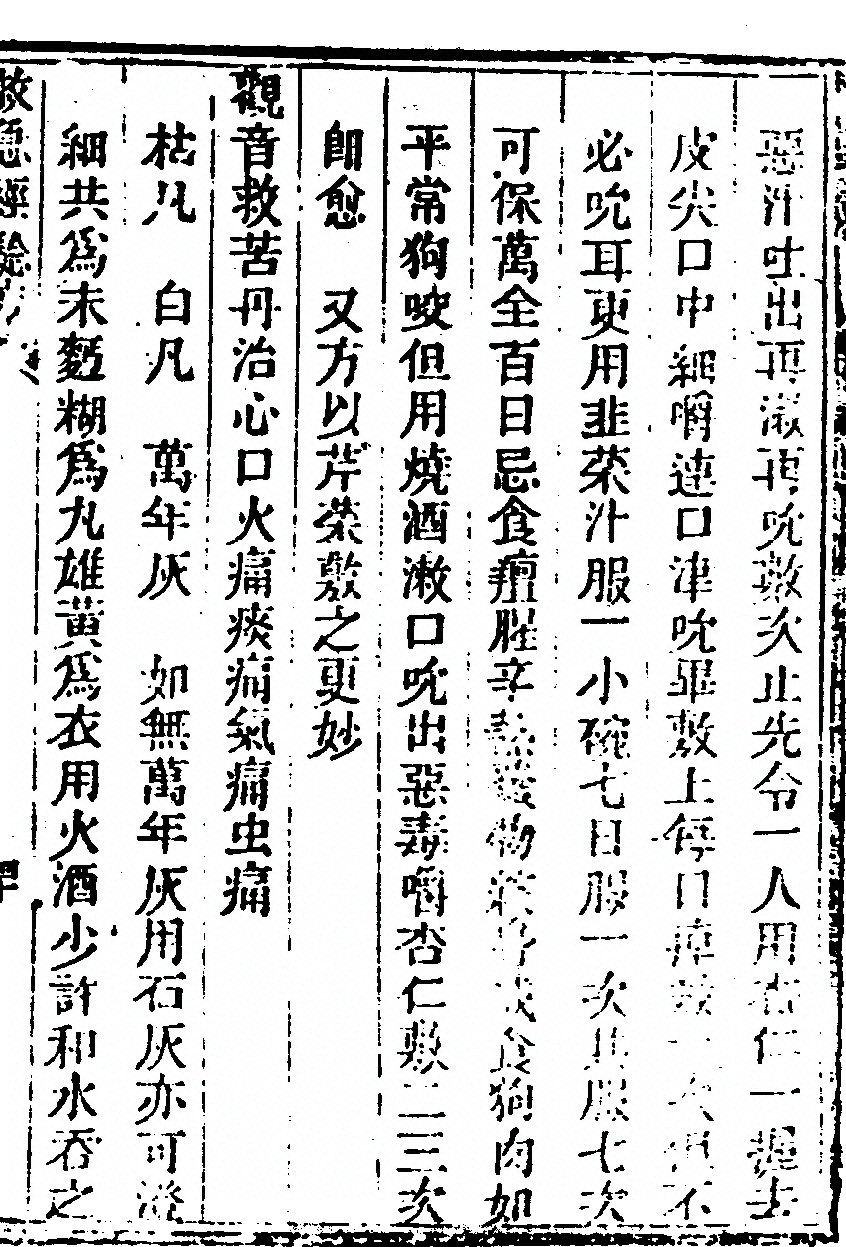 惡汁吐出再漱再吮數次止先令一人用杏仁一握去
皮尖口中細嚼連口津吮畢敷上每日
必吮耳更用韭菜汁服一小碗七日服一次共服七次
可保萬全百日忌食羶腥辛熱發物食狗肉如
平常狗咬但用燒酒漱口吮出惡毒嚼杏仁敷二三次
卽愈　又方以芹菜敷之更妙
觀音救苦丹治心口火痛痰痛氣痛虫痛
枯凡　白凡　萬年灰　如無萬年灰用石灰亦可
細共爲末麪糊爲丸雄黃爲衣用火酒少許和水吞之
救急經驗